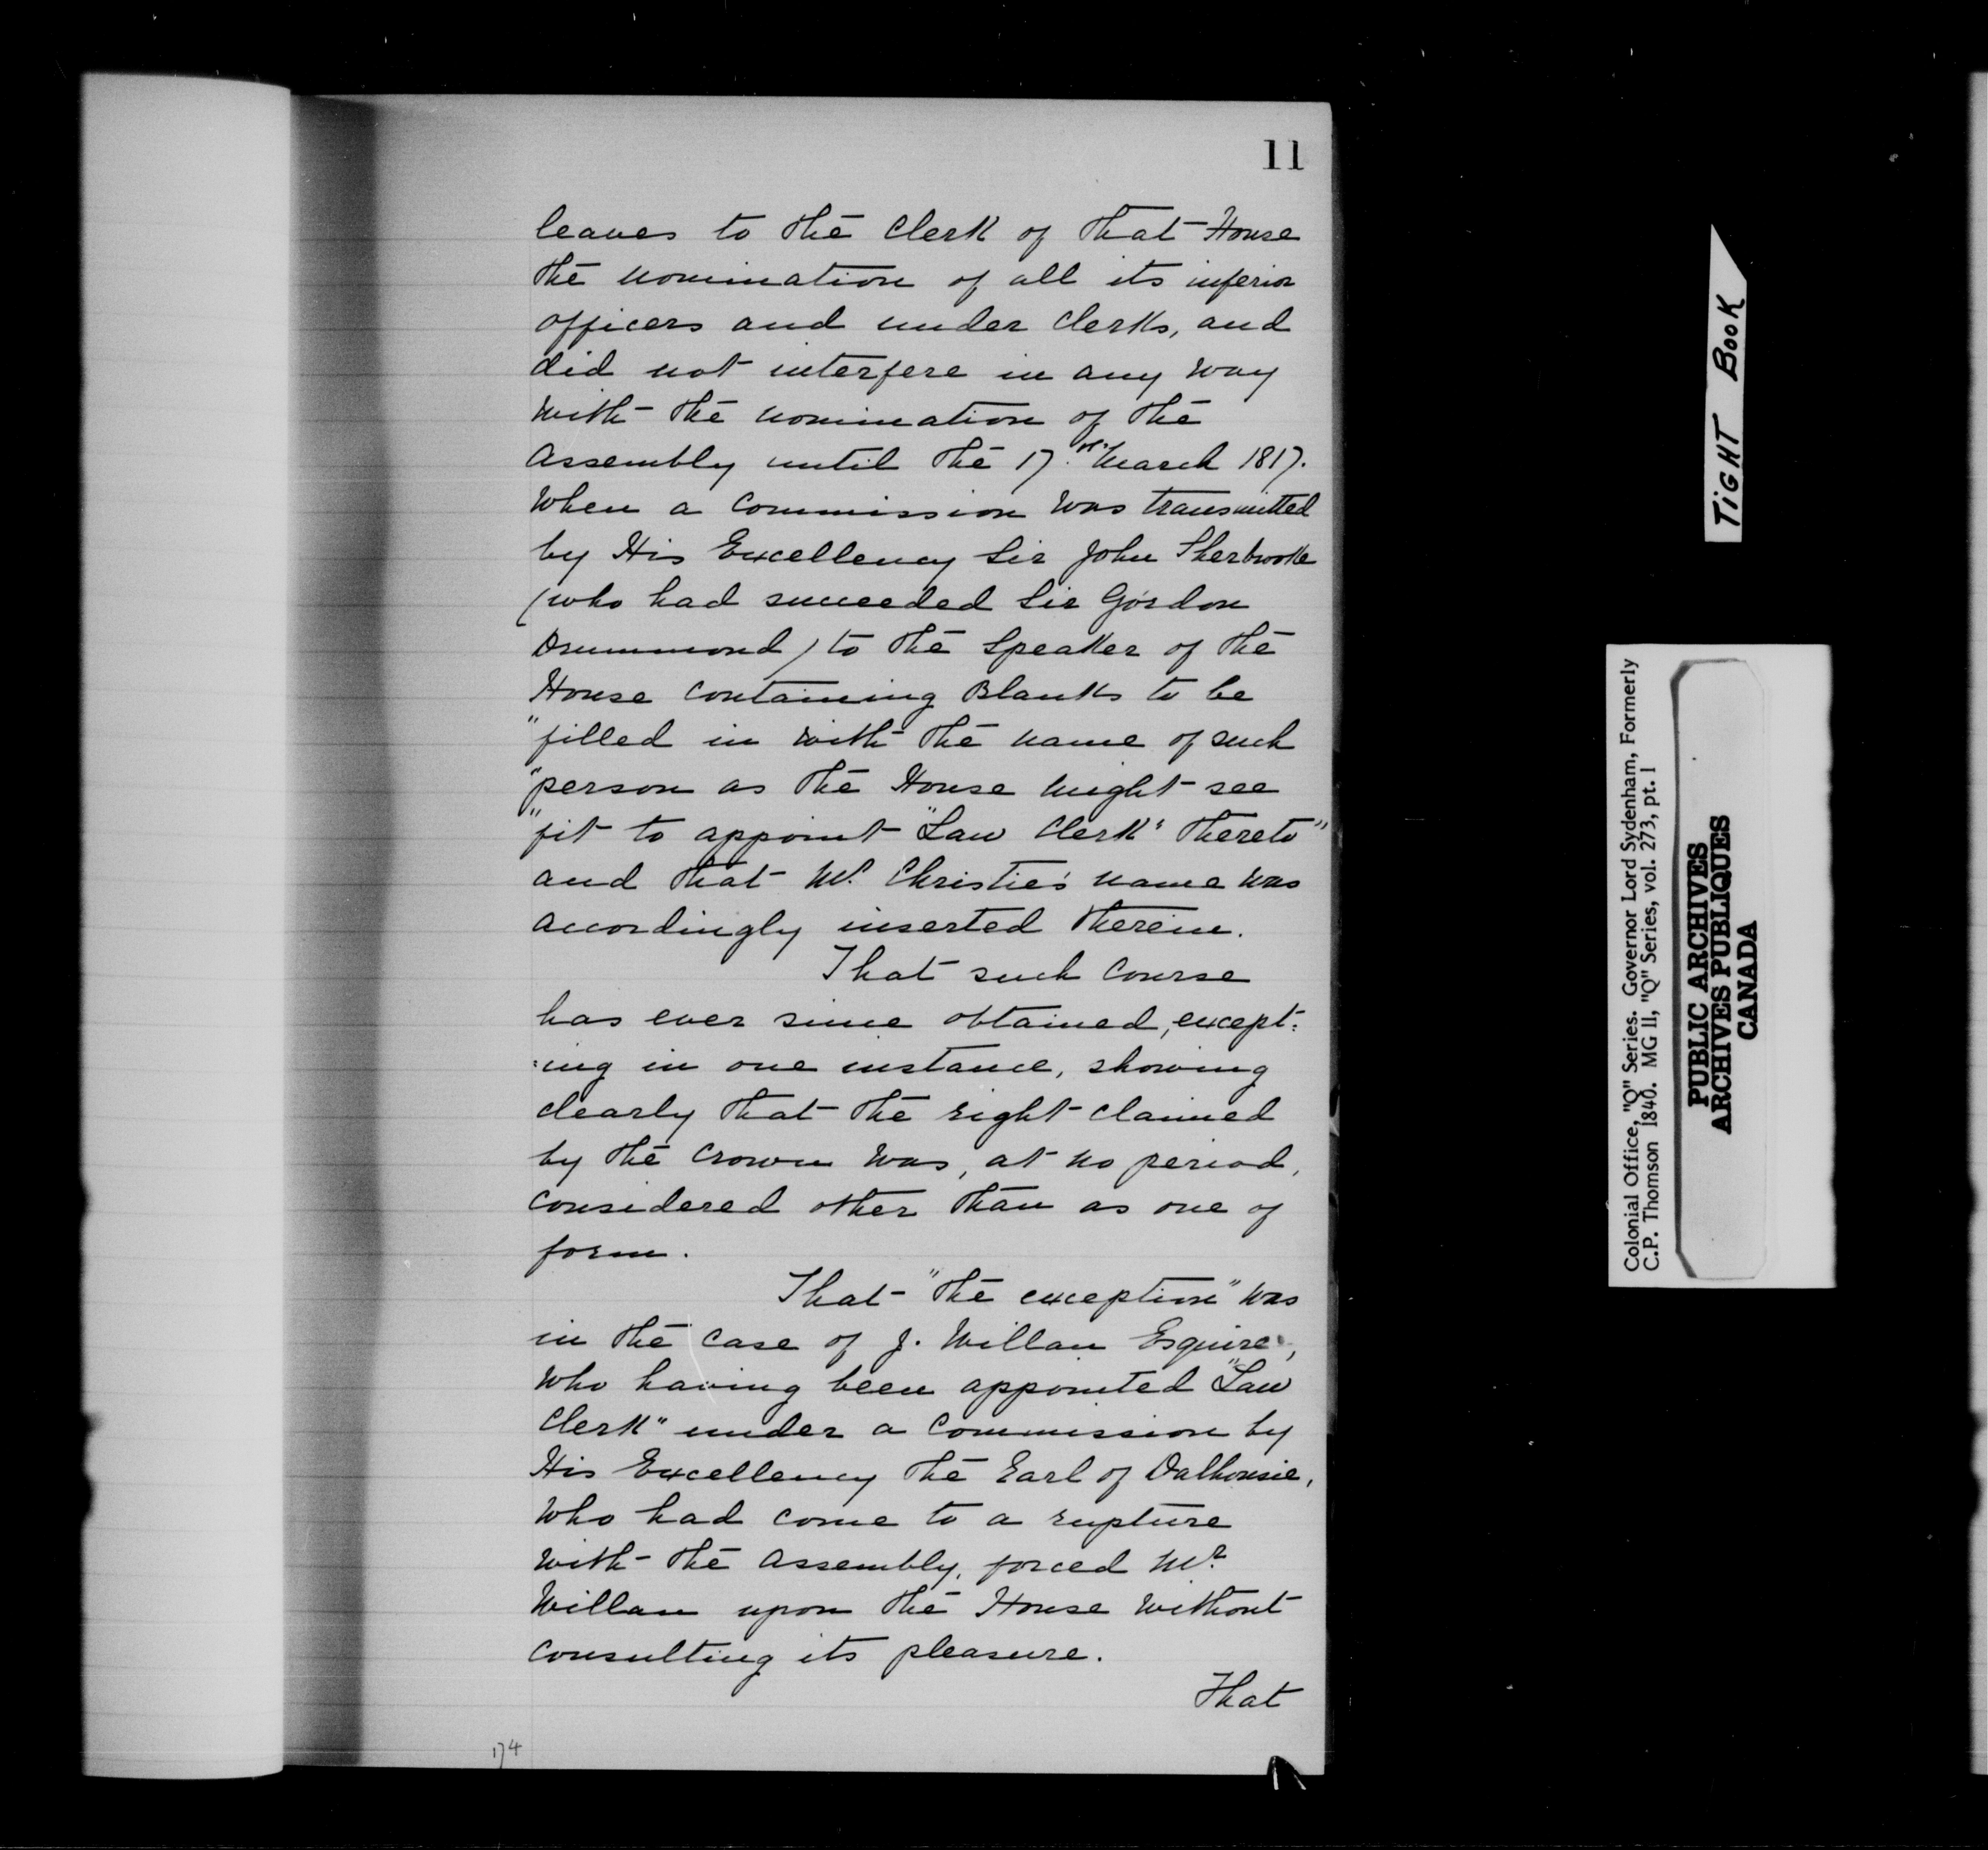 11
leaves to the Clerk of that House
the nomination of all its inferior
officers and under Clerks, and
did not interfere in any way
with the nomination of the
Assembly until the 17th. March 1817.
When a Commission was transmitted
by His Excellency Sir John Sherbrooke
(who had succeeded Sir Gordon
Drummond) to the Speaker of the
House Containing Blanks to be
"filled in with the name of such
"person as the House might see
"fit to appoint "Law Clerk" thereto"
and that Mr. Christie's name was
accordingly inserted therein.
That such Course
has ever since obtained, except:
:ing in one instance, showing
clearly that the right claimed
by the Crown was, at no period,
considered other than as one of
form.
That "the exception" was
in the case of J. Willan Esquire,
who having been appointed "Law
Clerk" under a Commission by
His Excellency the Earl of Dalhousie,
who had come to a rupture
with the Assembly, forced Mr.
Willan upon the House without
consulting its pleasure.
That
174
TIGHT BOOK
Colonial Office, "Q" Series. Governor Lord Sydenham, Formerly
C.P. Thomson 1840. MG 11, "Q" Series, vol. 273, pt. 1
PUBLIC ARCHIVES
ARCHIVES PUBLIQUES
CANADA